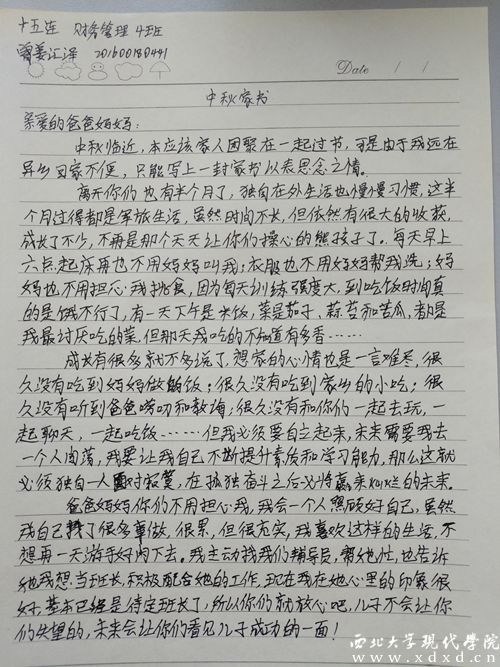 十五连 财务管理4班
雷姜汇泽 201600180441
Date / /
中秋家书
亲爱的爸爸妈妈:
中秋临近,本应该家人团聚在一起过节,可是由于我远在
异乡回家不便,只能写上一封家书以表思念之情。
离开你们也有半个月了,独自在外生活也慢慢习惯,这半
个月过得都是军旅生活,虽然时间不长,但依然有很大的收获,
成长了不少,不再是那个天天让你们操心的熊孩子了。每天早上
六点起床再也不用妈妈叫我;衣服也不用妈妈帮我洗;妈
妈也不用担心我挑食,因为每天训练强度大,到吃饭时间真
的是饿不行了,有一天下午是米饭,菜是茄子、蒜苔和苦瓜,都是
我最讨厌吃的菜,但那天我吃的不知道有多香……
成长有很多就不多说了,想家的心情也是一言难尽,很
久没有吃到妈妈做的饭;很久没有吃到家乡的小吃;很
久没有听到爸爸唠叨和教诲;很久没有和你们一起去玩,一
起聊天,一起吃饭……但我必须要自立起来,未来需要我去
一个人闯荡,我要让我自己不断提升素质和学习能力,那么这就
必须独自一人面对寂寞,在孤独奋斗之后必将赢来灿烂的未来。
爸爸妈妈你们不用担心我,我会一个人照顾好自己,虽然
我自己找了很多事做,很累,但很充实,我喜欢这样的生活,不
想再一天游手好闲下去。我主动找我们辅导员,帮她忙,也告诉
她我想当班长,积极配合她的工作,现在我在她心里的印象很
好,基本已经是待定班长了,所以你们就放心吧,儿子不会让你
们失望的,未来会让你们看见儿子成功的一面!
西北大学现代学院
www.xdxd.cn